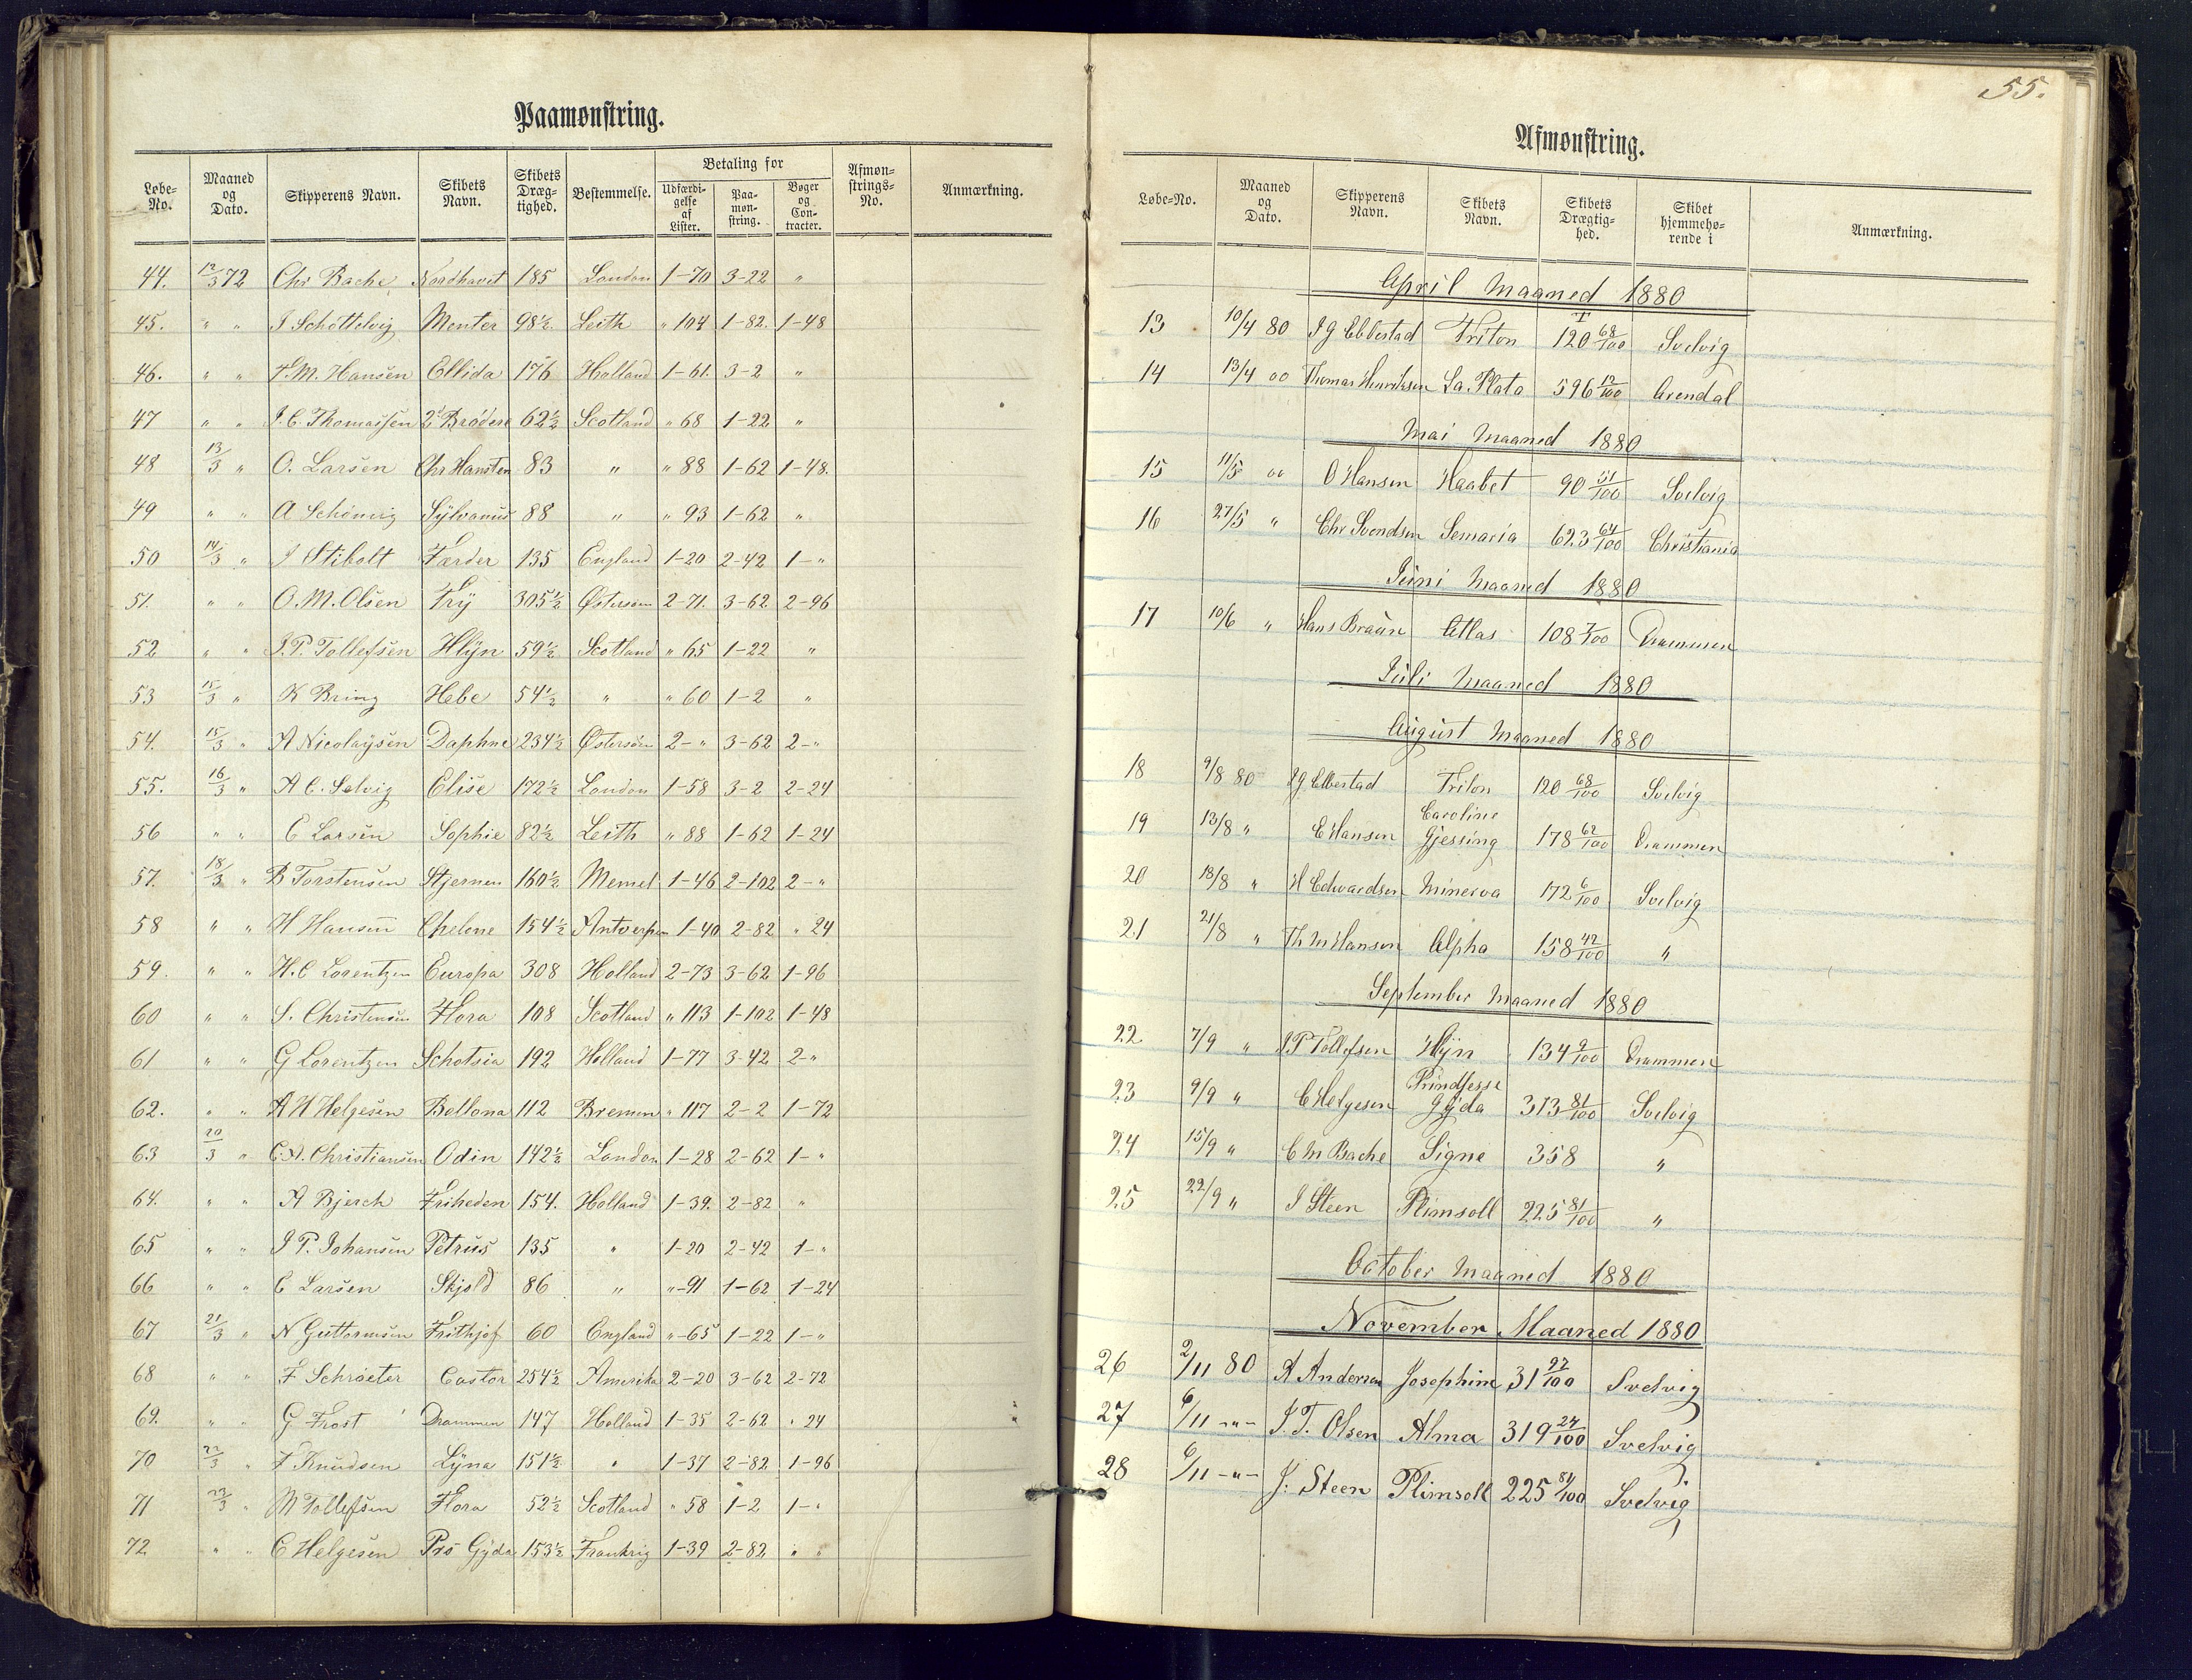 Paamønstring.
Løbe-No. Maaned og Dato. Skipperens Navn. Skibets Navn. Skibets Dræg-tighed. Bestemmelse. Betaling for Udfærdi-gelse af Lister. Paa-møn-string. Bøger og Con-tracter. Afmøn-strings-No. Anmærkning.
44. 12/3 72 Chr Bache Nordhavet 185 London 1-70 3-22 "
45. " " J Schottelvig Mentor 98½ Leith " 104 1-82. 1-48
46. " " F.M. Hansen Ellida 176 Holland 1-61. 3-2 "
47 " " J.C. Thomassen 2 Brødere 62½ Scotland " 68 1-22 "
48 13/3 " O. Larsen Chr Hansten 83 " " 88 1-62 1-48.
49 " " A Sylvanus 88 " " 93 1-62 "
50 14/3 " J Stibolt Færder 135 England 1-20 2-42 1-"
51. " " O.M. Olsen Frÿ 305½ Østersøen 2-71. 3-62 2-96
52 " " J.P. Tollefsen Hlÿn 59½ Scotland " 65 1-22 "
53 15/3 " K Bring Hebe 54½ " " 60 1-2 "
54. 15/3 " A Nicolaÿsen Daphne 234½ Østersøen 2-" 3-62 2-"
55. 16/3 " A C. Selvig Elise 172½ London 1-58 3-2 2-24
56 " " C Larsen Sophie 82½ Leith " 88 1-62 1-24
57. 18/3 " B Torstensen Stjernen 160½ Memel 1-46 2-102 2-"
58 " " H Hansen Chelene 154½ Antverpen 1-40 2-82 " 24
59. " " H.C Lorentzen Europa 308 Holland 2-73 3-62 1-96
60 " " S. Christensen Flora 108 Scotland " 113 1-102 1-48
61 " " G Lorentzen Schotsia 192 Holland 1-77 3-42 2-"
62. " " A H Helgesen Bellona 112 Bremen " 117 2-2 1-72
63 20/3 " C.A. Christiansen Odin 142½ London 1-28 2-62 1-"
64. " " A Bjerch Friheden 154. Holland 1-39. 2-82 "
65 " " J P. Johansen Petrus 135 " 1-20 2-42 1-"
66 " " C Larsen Skjold 86 " "-91 1-62 1-24
67 21/3 " N Guttormsen Frithjof 60 England "-65 1-22 1-"
68 " " F Schrøeter Castor 254½ Amerika 2-20 3-62 2-72
69. " " G Frost Drammen 147 Holland 1-35 2-62 " 24
70 22/3 " F Knudsen Lÿna 151½ " 1-37 2-82 1-96
71 22/3 " M Tollefsen Flora 52½ Scotland " 58 1-2 1-"
72 " " C Helgesen Prs Gÿda 153½ Frankrig 1-39 2-82 " "
55.
Afmønstring.
Løbe-No. Maaned og Dato. Skipperens Navn. Skibets Navn. Skibets Drægtig-hed. Skibet hjemmehø-rende i Anmærkning.
April Maaned 1880
13 10/4 80 J G Ebbestad Triton 120 68/100 Svelvig
14 13/4 " Thomas Henriksen La Plata 596 12/100 Arendal
Mai Maaned 1880
15 11/5 " O Hansen Haabet 90 51/100 Svelvig
16 27/5 " Chr Svendsen Semaria 623 64/100 Christiania
Juni Maaned 1880
17 10/6 " Hans Braün Atlas 108 7/100 Drammen
Juli Maaned 1880
August Maaned 1880
18 9/8 80 J G. Ebbestad Triton 120 68/100 Svelvig
19 13/8 " E Hansen Caroline Gjessing 178 62/100 Drammen
20 18/8 " H Edvardsen Minerva 172 6/100 Svelvig
21 21/8 " Th M Hansen Alpha 158 42/100 "
September Maaned 1880
22 7/9 " J.P Tollefsen Hlÿn 134 9/100 Drammen
23 9/9 " C Helgesen Prindsesse Gÿda 313 81/100 Svelvig
24 15/9 " C M Bache Signe 358 "
25 22/9 " J Steen Plimsoll 225 81/100 "
October Maaned 1880
November Maaned 1880
26 2/11 80 A Andersen Josephine 31 97/100 Svelvig
27 6/11 -"- J.T. Olsen Alma 319 24/100 Svelvig
28 6/11 -"- J. Steen Plimsoll 225 81/100 Svelvig